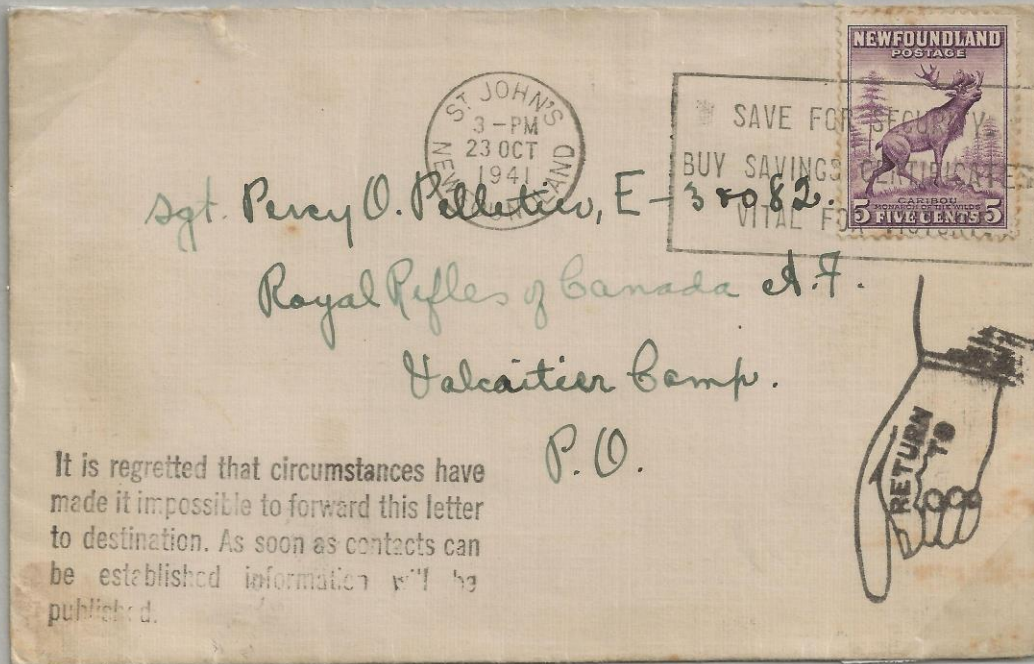 NEWFOUNDLAND
POSTAGE
CARIBOU
MONARCH OF THE WILDS
5 FIVE CENTS 5
ST. JOHN'S
3 - PM
23 OCT
1941
NEWFOUNDLAND
SAVE FOR SECURITY.
BUY SAVINGS CERTIFICATES
VITAL FOR VICTORY
Sgt. Percy O. Pelletier, E-38082.
Royal Rifles of Canada A.F.
Valcaitier Camp.
P.O.
RETURN
TO
It is regretted that circumstances have
made it impossible to forward this letter
to destination. As soon as contacts can
be established information will be
published.